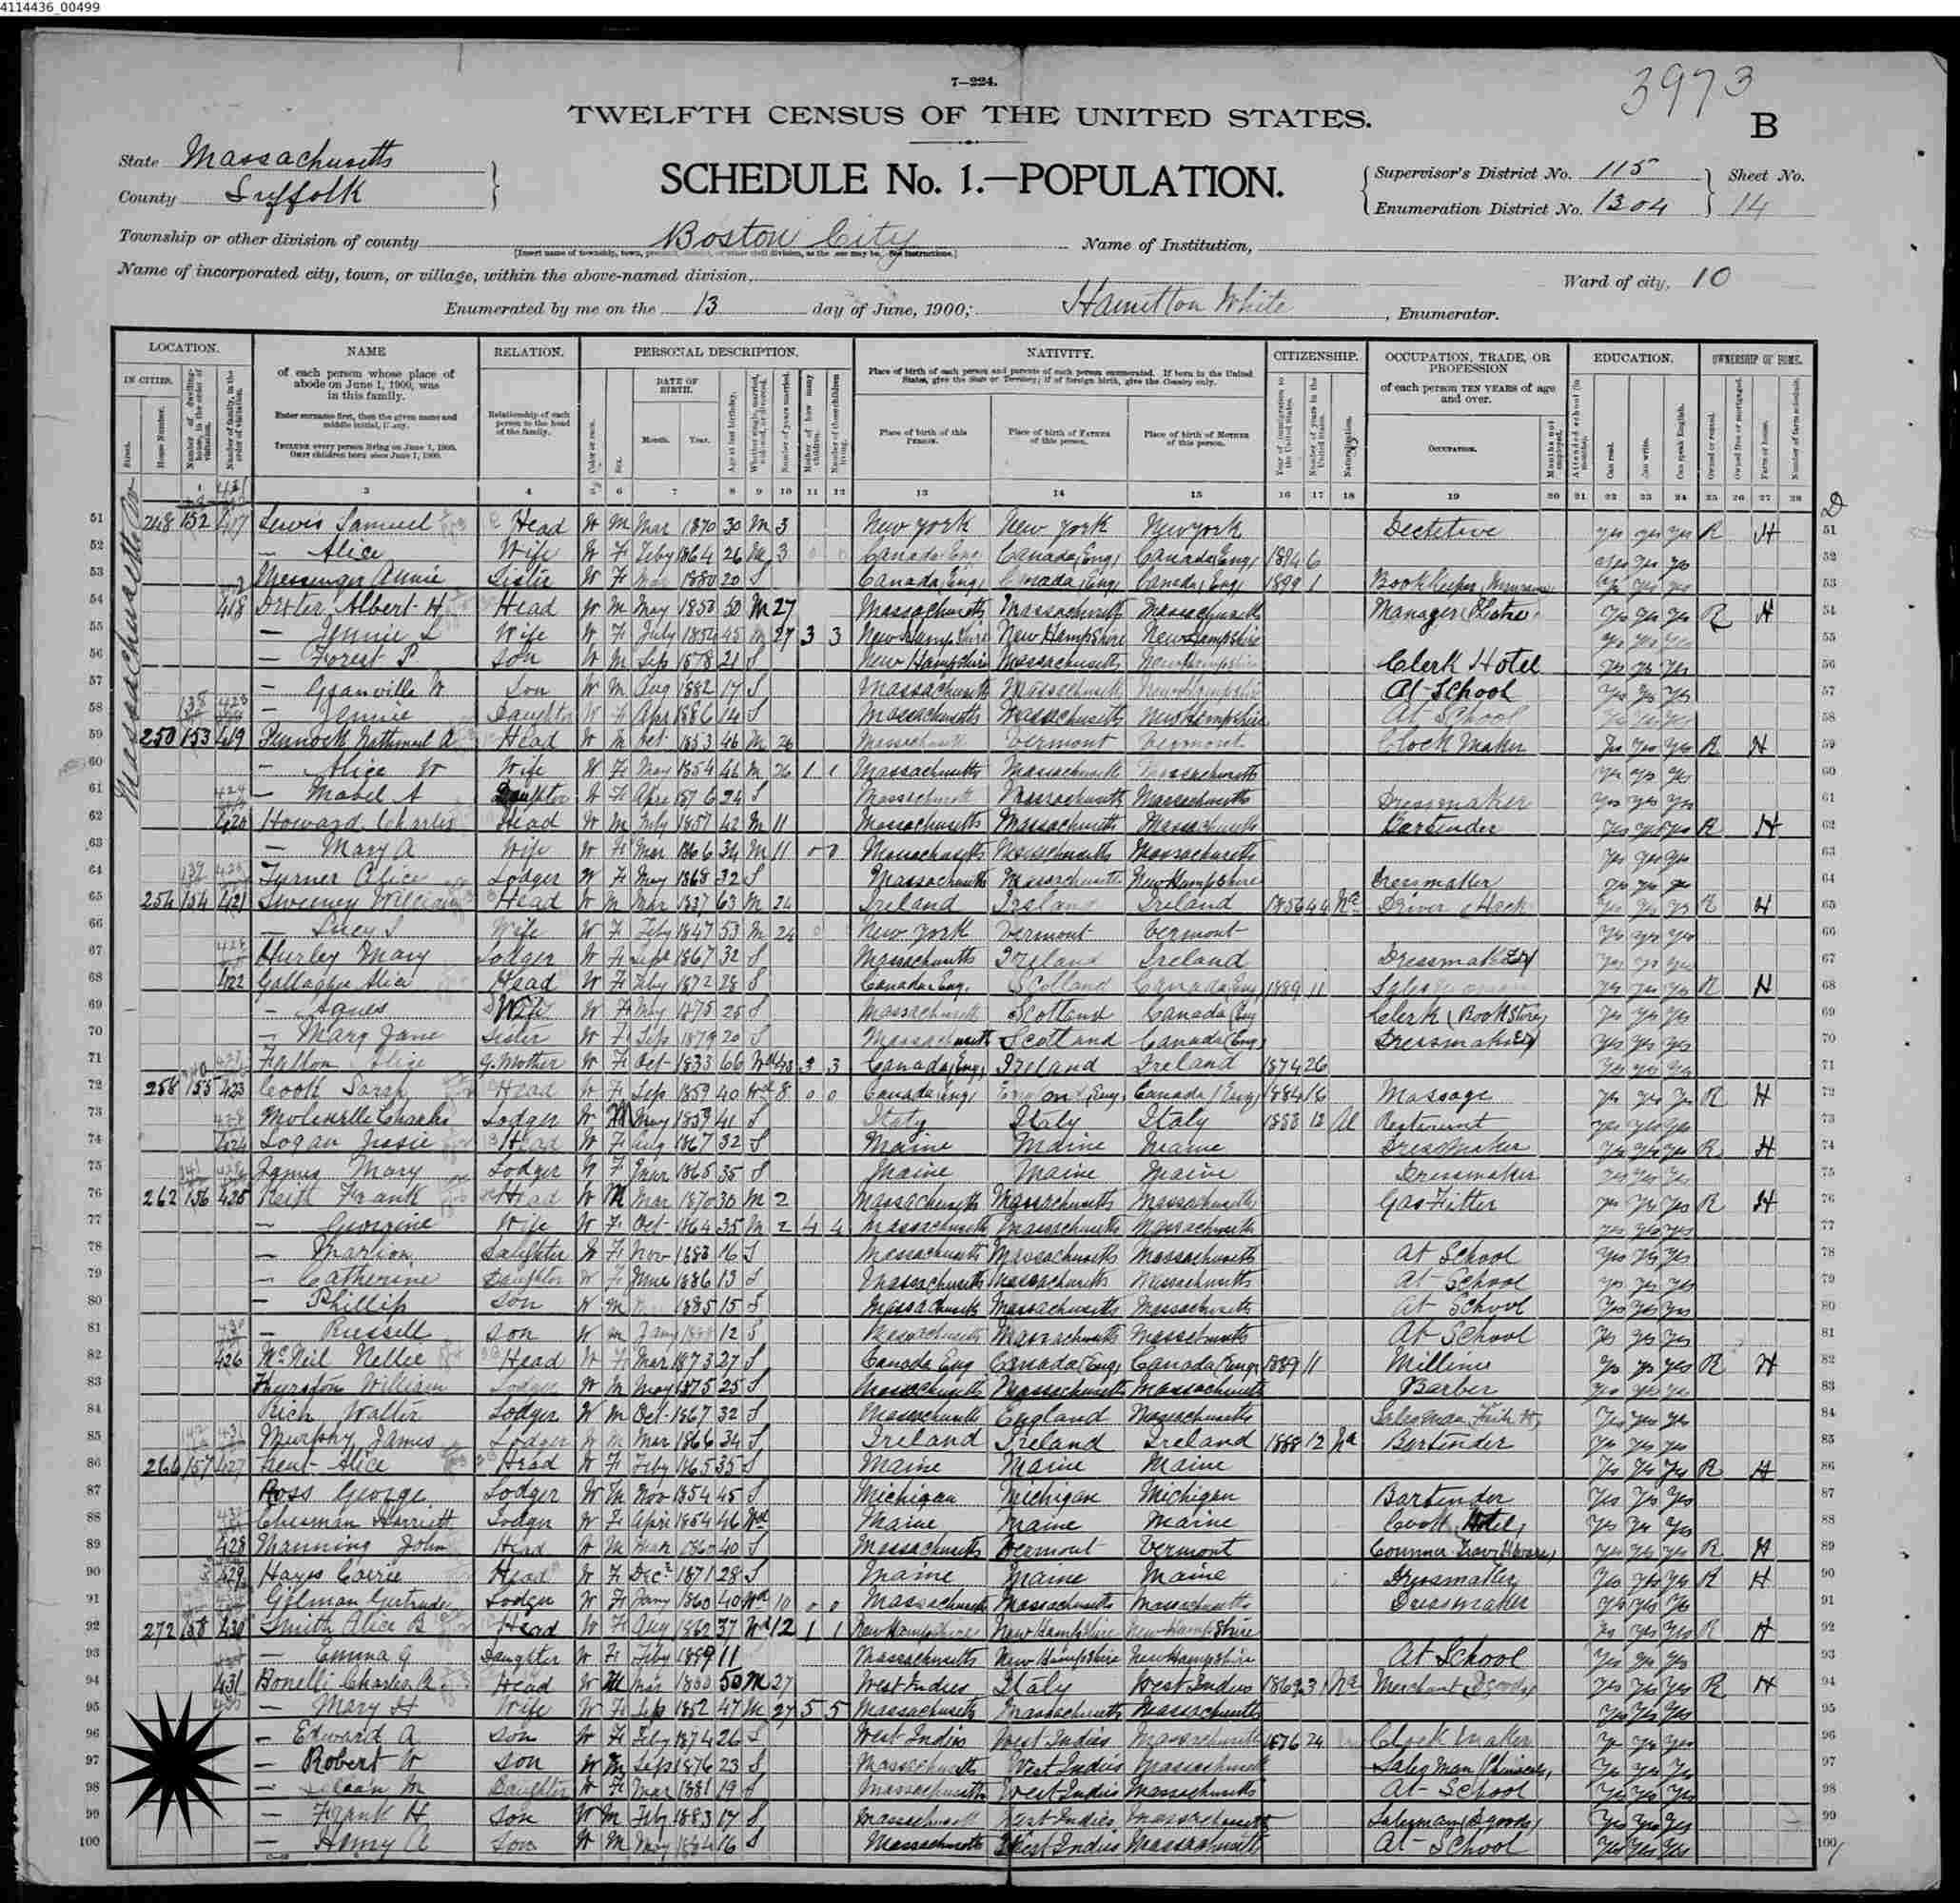 4114436_00499
7—224.
3973
TWELFTH CENSUS OF THE UNITED STATES.
B
State Massachusetts
County Suffolk
SCHEDULE No. 1.—POPULATION.
Supervisor's District No. 115
Enumeration District No. 1304
Sheet No. 14
Township or other division of county Boston City
Name of Institution,
Name of incorporated city, town, or village, within the above-named division,
Ward of city, 10
Enumerated by me on the 13 day of June, 1900; Hamilton White, Enumerator.
LOCATION. NAME RELATION. PERSONAL DESCRIPTION. NATIVITY. CITIZENSHIP. OCCUPATION, TRADE, OR PROFESSION EDUCATION. OWNERSHIP OF HOME.
Massachusetts Av
51 248 152 417 Lewis Samuel Head W M Mar 1870 30 M 3 New York New York New York Dectetive yes yes yes R H
52 — Alice Wife W F Feby 1864 26 M 3 Canada (Eng) Canada (Eng) Canada (Eng) 1894 6 yes yes yes
53 Messenger Annie Sister W F 1880 20 S Canada (Eng) Canada (Eng) Canada (Eng) 1899 1 Bookkeeper yes yes
54 418 Albert H Head W M May 1850 50 M 27 Massachusetts Massachusetts Massachusetts Manager yes yes yes R H
55 — Jennie L Wife W F July 1854 45 M 27 3 3 New Hampshire New Hampshire New Hampshire yes yes yes
56 — Forest P Son W M Sep 1878 21 S New Hampshire Massachusetts New Hampshire Clerk Hotel yes yes yes
57 — Granville W Son W M Aug 1882 17 S Massachusetts Massachusetts New Hampshire At School yes yes yes
58 — Jennie Daughter W F Apr 1886 14 S Massachusetts Massachusetts New Hampshire At School yes yes yes
59 250 153 419 Pennock Nathaniel A Head W M Oct 1853 46 M 26 Massachusetts Vermont Vermont Clock Maker yes yes yes R H
60 — Alice W Wife W F May 1854 46 M 26 1 1 Massachusetts Massachusetts Massachusetts yes yes yes
61 — Mabel A Daughter W F Apr 1876 24 S Massachusetts Massachusetts Massachusetts Dressmaker yes yes yes
62 420 Howard Charles Head W M July 1857 42 M 11 Massachusetts Massachusetts Massachusetts Bartender yes yes yes R H
63 — Mary A Wife W F Mar 1866 34 M 11 0 0 Massachusetts Massachusetts Massachusetts yes yes yes
64 Turner Alice Lodger W F May 1868 32 S Massachusetts Massachusetts New Hampshire Dressmaker yes yes yes
65 254 154 421 Sweeney William Head W M Mar 1837 63 M 24 Ireland Ireland Ireland 1856 44 Na Driver Hack yes yes yes R H
66 — Lucy S Wife W F Feby 1847 53 M 24 0 New York Vermont Vermont yes yes yes
67 Hurley Mary Lodger W F Sept 1867 32 S Massachusetts Ireland Ireland Dressmaker yes yes yes
68 422 Gallagher Alice Head W F Feby 1872 28 S Canada Eng. Scotland Canada (Eng) 1889 11 yes yes yes R H
69 — Agnes Wife W F May 1875 25 S Massachusetts Scotland Canada (Eng Clerk (Book Store) yes yes yes
70 — Mary Jane Sister W F Sep 1879 20 S Massachusetts Scotland Canada (Eng) Dressmaker yes yes yes
71 Fallon Alice G. Mother W F Oct 1833 66 Wd 3 3 Canada (Eng) Ireland Ireland 1874 26 yes yes yes
72 258 155 423 Cook Sarah Head W F Sep 1859 40 Wd 8 0 0 Canada (Eng) Canada (Eng) 1884 16 Massage yes yes yes R H
73 Charles Lodger W M May 1859 41 S Italy Italy Italy 1888 12 Al Restaurant yes yes yes
74 424 Logan Jessie Head W F Aug 1867 32 S Maine Maine Maine Dressmaker yes yes yes R H
75 James Mary Lodger W F Mar 1865 35 S Maine Maine Maine Dressmaker yes yes yes
76 262 156 425 Keith Frank Head W M Mar 1870 30 M 2 Massachusetts Massachusetts Massachusetts Gas Fitter yes yes yes R H
77 — Georgine Wife W F Oct 1864 35 M 2 4 4 Massachusetts Massachusetts Massachusetts yes yes yes
78 — Marlion Daughter W F Nov 1883 16 S Massachusetts Massachusetts Massachusetts At School yes yes yes
79 — Catherine Daughter W F June 1886 13 S Massachusetts Massachusetts Massachusetts At School yes yes yes
80 — Phillip Son W M 1885 15 S Massachusetts Massachusetts Massachusetts At School yes yes yes
81 — Russell Son W M Jany 12 S Massachusetts Massachusetts Massachusetts At School yes yes yes
82 426 McNeil Nellie Head W F Mar 1873 27 S Canada Eng Canada (Eng) Canada (Eng) 1889 11 Milliner yes yes yes R H
83 Thurston William Lodger W M May 1875 25 S Massachusetts Massachusetts Massachusetts Barber yes yes yes
84 Rich Walter Lodger W M Oct 1867 32 S Massachusetts England Massachusetts Salesman yes yes yes
85 Murphy James Lodger W M Mar 1866 34 S Ireland Ireland Ireland 1888 12 Na Bartender yes yes yes
86 266 157 427 Kent Alice Head W F Feby 1865 35 S Maine Maine Maine yes yes yes R H
87 Ross George Lodger W M Nov 1854 45 S Michigan Michigan Michigan Bartender yes yes yes
88 Chesman Harriett Lodger W F April 1854 46 Wd Maine Maine Maine Cook Hotel yes yes yes
89 428 Manning John Head W M Mar 1860 40 S Massachusetts Vermont Vermont yes yes yes R H
90 429 Hayes Carrie Head W F Dec 1871 28 S Maine Maine Maine Dressmaker yes yes yes R H
91 Gilman Gertrude Lodger W F Jany 1860 40 Wd 10 0 0 Massachusetts Massachusetts Massachusetts Dressmaker yes yes yes
92 272 158 430 Smith Alice B Head W F Aug 1862 37 Wd 12 1 1 New Hampshire New Hampshire New Hampshire yes yes yes R H
93 — Emma G Daughter W F Feby 1889 11 Massachusetts New Hampshire New Hampshire At School yes yes yes
94 431 Bonelli Charles A Head W M Mar 1850 50 M 27 West Indies Italy West Indies 1869 31 Na Merchant D goods yes yes yes R H
95 — Mary H Wife W F Sep 1852 47 M 27 5 5 Massachusetts Massachusetts Massachusetts yes yes yes
96 — Edward A Son W F Feby 1874 26 S West Indies West Indies Massachusetts 1876 24 Clock Maker yes yes yes
97 — Robert W Son W M Sep 1876 23 S Massachusetts West Indies Massachusetts Salesman yes yes yes
98 — M Daughter W F Mar 1881 19 S Massachusetts West Indies Massachusetts At School yes yes yes
99 — Frank H Son W M Feby 1883 17 S Massachusetts West Indies Massachusetts Salesman (D goods) yes yes yes
100 — Henry A Son W M May 1884 16 S Massachusetts West Indies Massachusetts At School yes yes yes